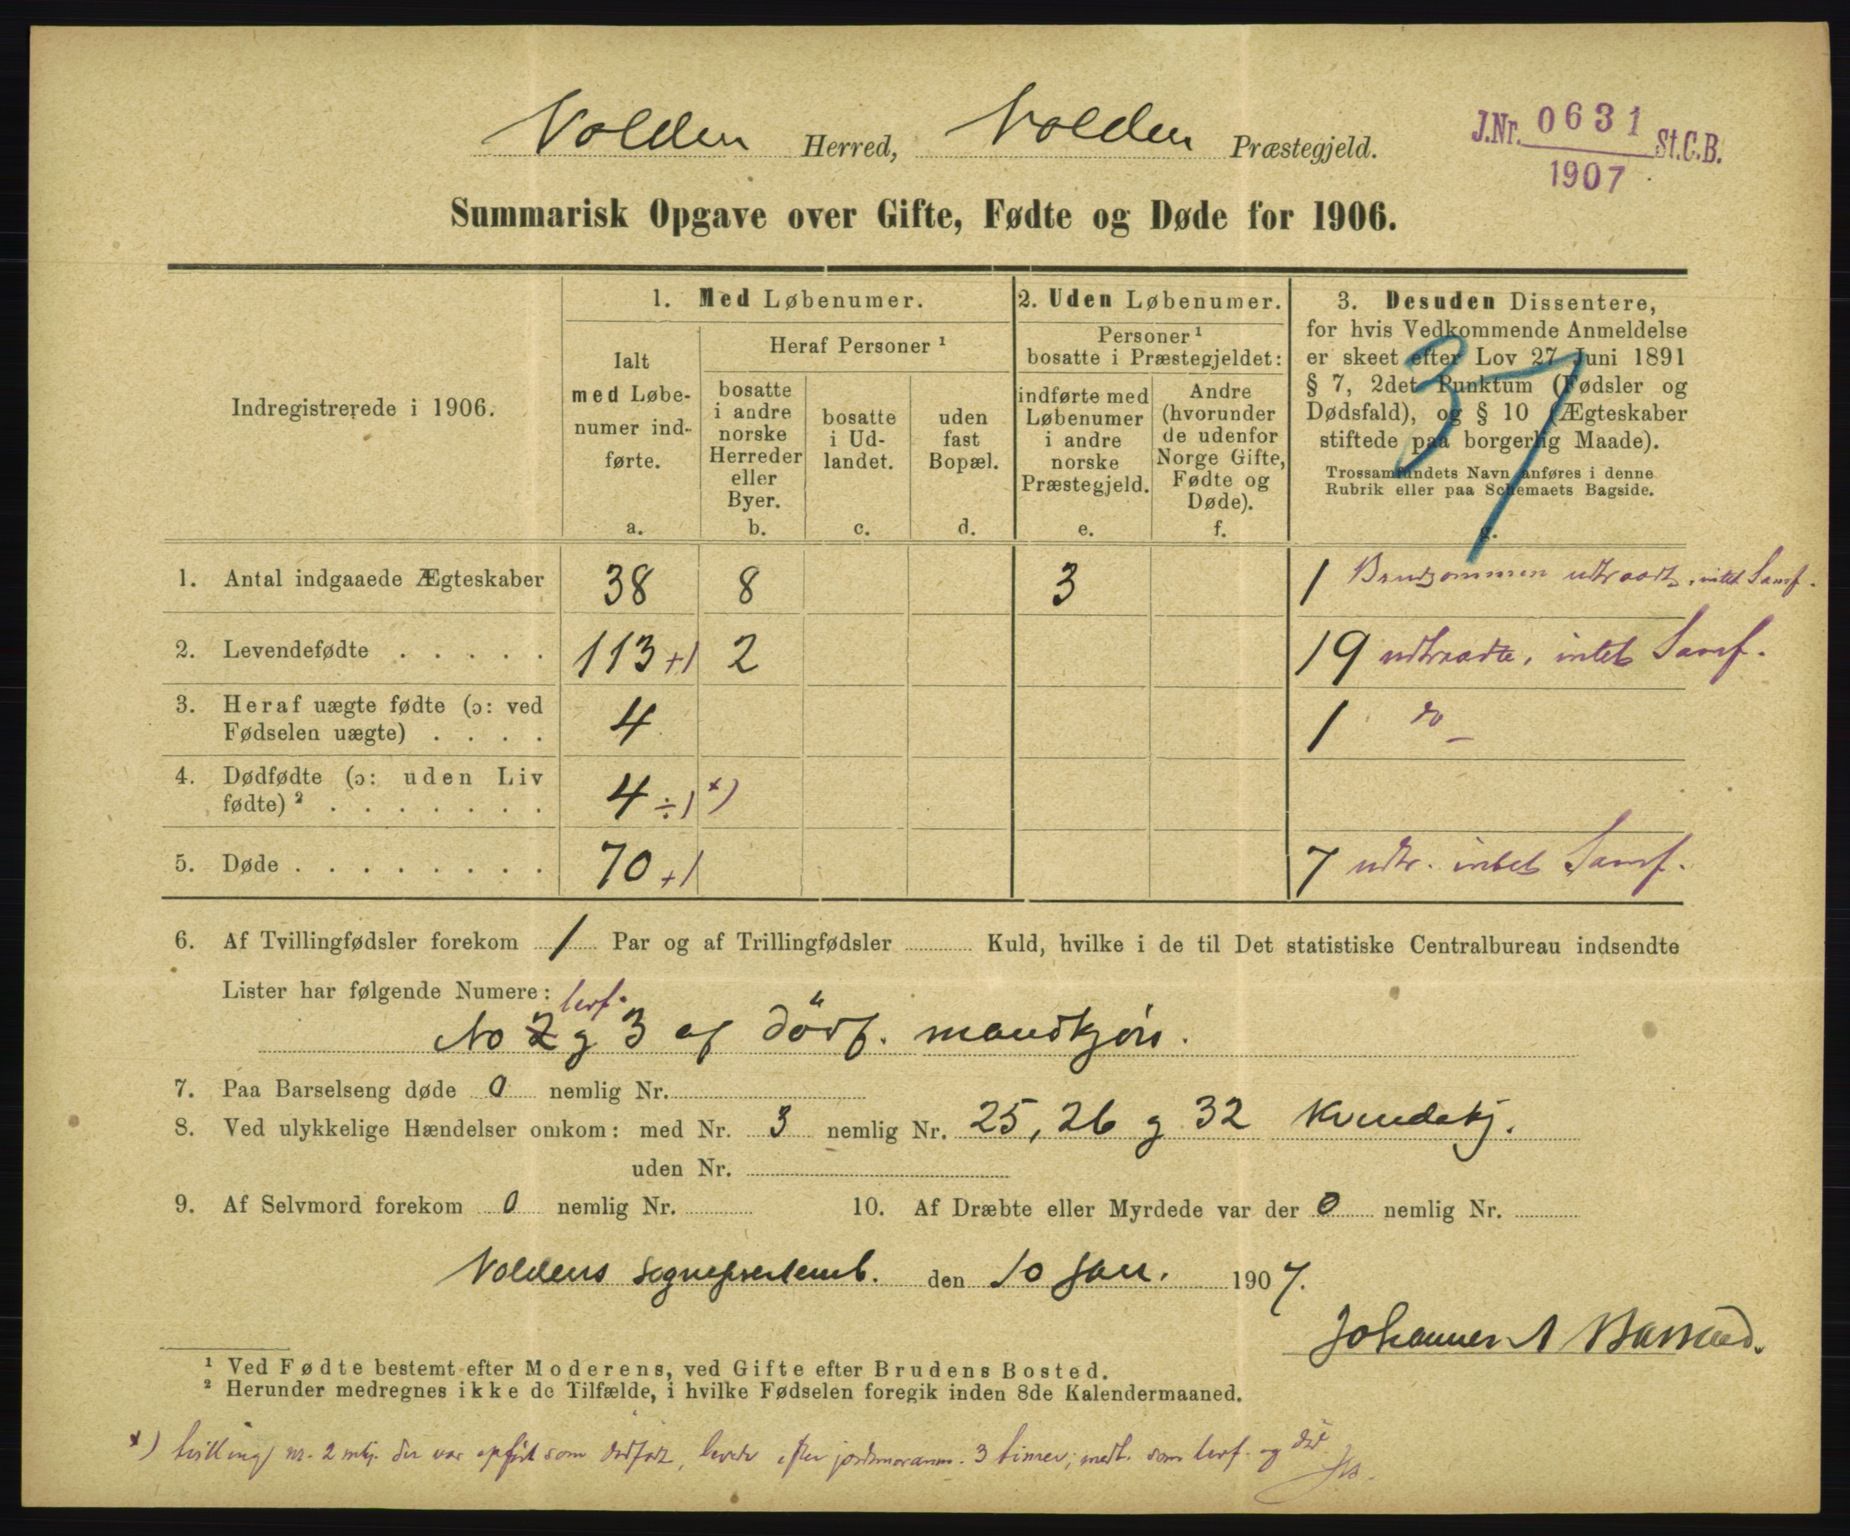 Volden Herred, Volden Præstegjeld.
J.Nr. 0631 St.C.B.
1907
Summarisk Opgave over Gifte, Fødte og Døde for 1906.
Indregistrerede i 1906.
1. Med Løbenumer.
Ialt
med Løbe-
numer ind-
førte.
a.
Heraf Personer ¹
bosatte
i andre
norske
Herreder
eller
Byer.
b.
bosatte
i Ud-
landet.
c.
uden
fast
Bopæl.
d.
2. Uden Løbenumer.
Personer ¹
bosatte i Præstegjeldet:
indførte med
Løbenumer
i andre
norske
Præstegjeld.
e.
Andre
(hvorunder
de udenfor
Norge Gifte,
Fødte og
Døde).
f.
3. Desuden Dissentere,
for hvis Vedkommende Anmeldelse
er skeet efter Lov 27 Juni 1891
§ 7, 2det Punktum (Fødsler og
Dødsfald), og § 10 (Ægteskaber
stiftede paa borgerlig Maade).
Trossamfundets Navn anføres i denne
Rubrik eller paa Schemaets Bagside.
g.
37
1. Antal indgaaede Ægteskaber 38 8 3 1 Brudgommen udtraadt, intet Samf.
2. Levendefødte . . . . . 113 +1 2 19 udtraadte, intet Samf.
3. Heraf uægte fødte (ɔ: ved
Fødselen uægte) . . . . 4 1 do
4. Dødfødte (ɔ: uden Liv
fødte) ² . . . . . . . 4 ÷1 *)
5. Døde . . . . . . . . 70 +1 7 udtr. intet Samf.
6. Af Tvillingfødsler forekom 1 Par og af Trillingfødsler Kuld, hvilke i de til Det statistiske Centralbureau indsendte
Lister har følgende Numere: levf.
No 2 g 3 af dødf. mandkjøn.
7. Paa Barselseng døde 0 nemlig Nr.
8. Ved ulykkelige Hændelser omkom: med Nr. 3 nemlig Nr. 25, 26 g 32 Kvindekj.
uden Nr.
9. Af Selvmord forekom 0 nemlig Nr. 10. Af Dræbte eller Myrdede var der 0 nemlig Nr.
Voldens sognepræstemb. den 10 Jan. 1907.
Johannes A Barstad.
¹ Ved Fødte bestemt efter Moderens, ved Gifte efter Brudens Bosted.
² Herunder medregnes ikke de Tilfælde, i hvilke Fødselen foregik inden 8de Kalendermaaned.
*) tvilling nr. 2 mkj. der var opført som dødfødt, levede efter jordmoranm. 3 timer; medt. som levf. og død